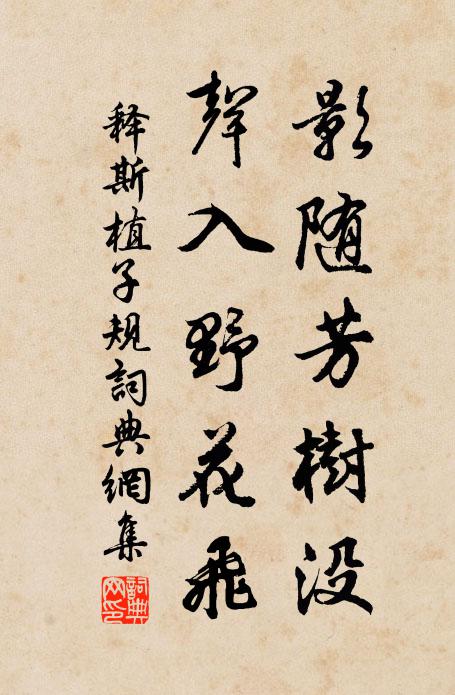 影随芳樹没
聲入野花飛
释斯植子規詞典網集
詞典